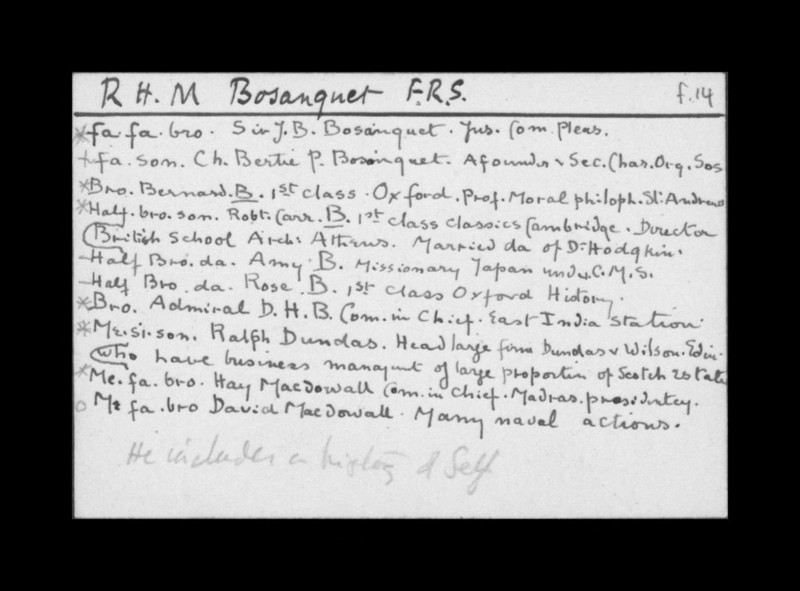 R H. M Bosanquet F.R.S. f.14
* fa. fa. bro. Sir J. B. Bosanquet. Jus. Com. Pleas.
+ fa. son. Ch. Bertie P. Bosanquet. A founder & Sec. Char. Org. Sos
* Bro. Bernard. B. 1st class. Oxford. Prof. Moral philoph. St. Andrews
* Half. bro. son. Robt. Carr. B. 1st class classics Cambridge. Director
British School Arch: Athens. Married da of Dr Hodgkin.
- Half Bro. da. Amy B. Missionary Japan under C.M.S.
- Half Bro. da. Rose B. 1st class Oxford History.
* Bro. Admiral D. H. B. Com. in Chief. East India Station
* Me. si. son. Ralph Dundas. Head large firm Dundas & Wilson. Edin.
who have business managmt of large proportion of Scotch Estate
* Me. fa. bro. Hay Macdowall Com. in Chief. Madras. presidentcy.
o Me fa. bro David Macdowall. Many naval actions.
He includes a history of Self